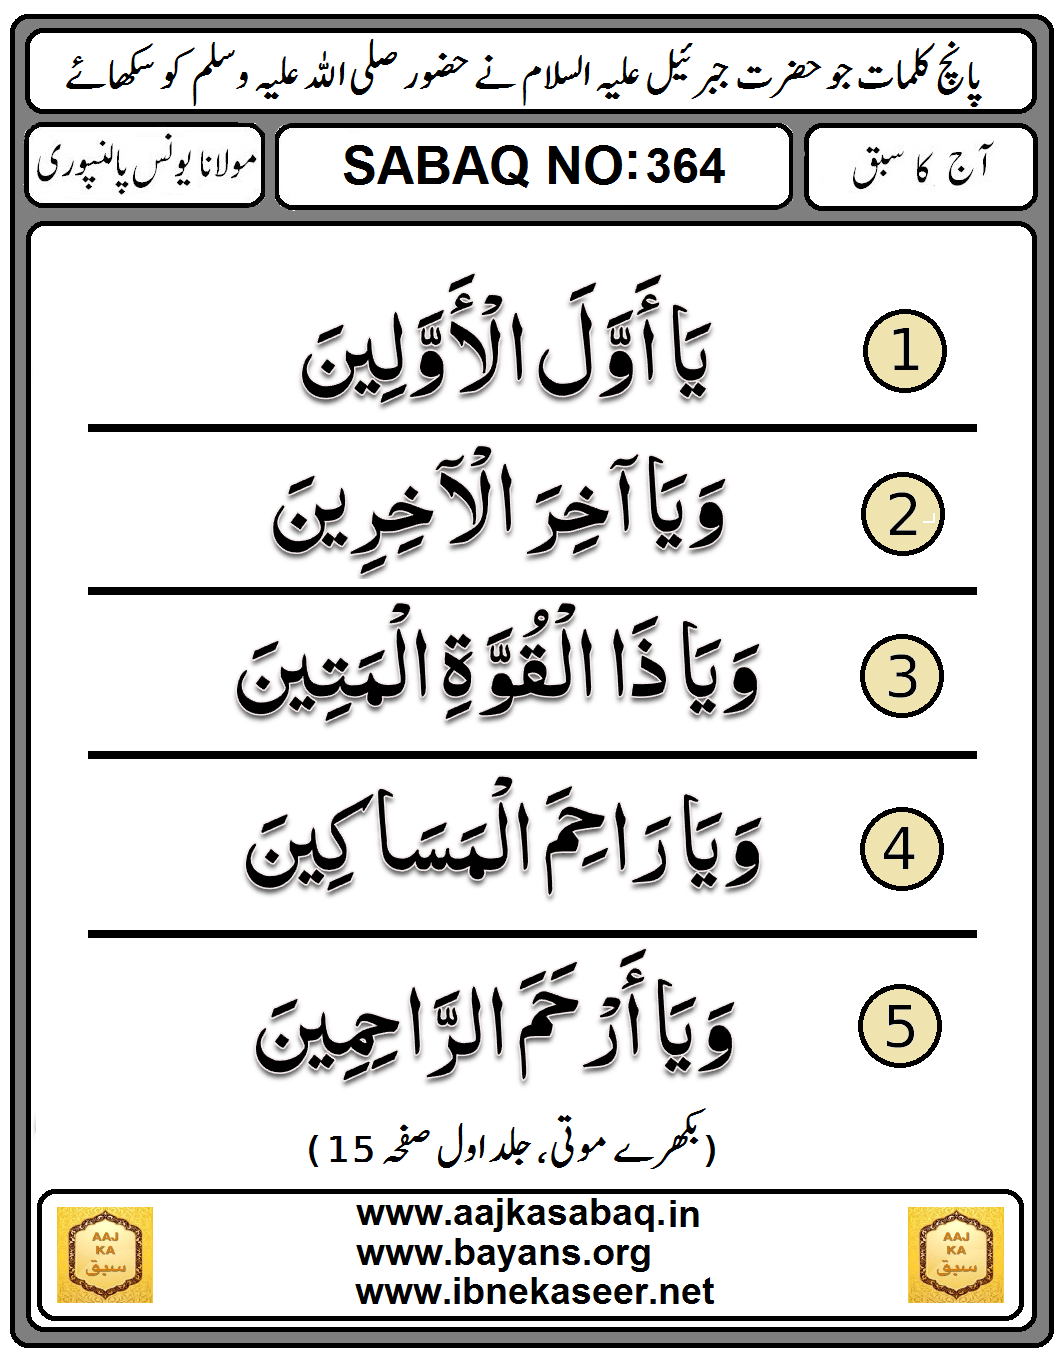 پانچ کلمات جو حضرت جبرئیل علیہ السلام نے حضور صلی اللہ علیہ وسلم کو سکھائے
آج کا سبق
SABAQ NO:364
مولانا یونس پالنپوری
1 يَا أَوَّلَ الْأَوَّلِينَ
2 وَيَا آخِرَ الْآخِرِينَ
3 وَيَا ذَا الْقُوَّةِ الْمَتِينَ
4 وَيَا رَاحِمَ الْمَسَاكِينَ
5 وَيَا أَرْحَمَ الرَّاحِمِينَ
(بکھرے موتی، جلد اول صفحہ 15)
www.aajkasabaq.in
www.bayans.org
www.ibnekaseer.net
AAJ
KA
سبق
AAJ
KA
سبق